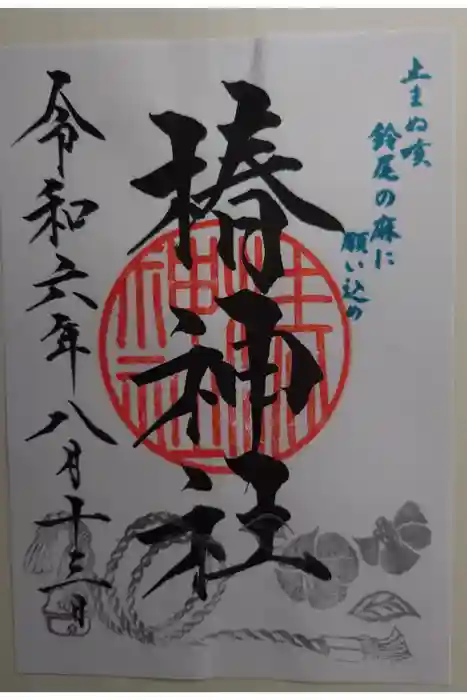 止まぬ咳
鈴尾の麻に
願い込め
椿神社
令和六年八月十三日